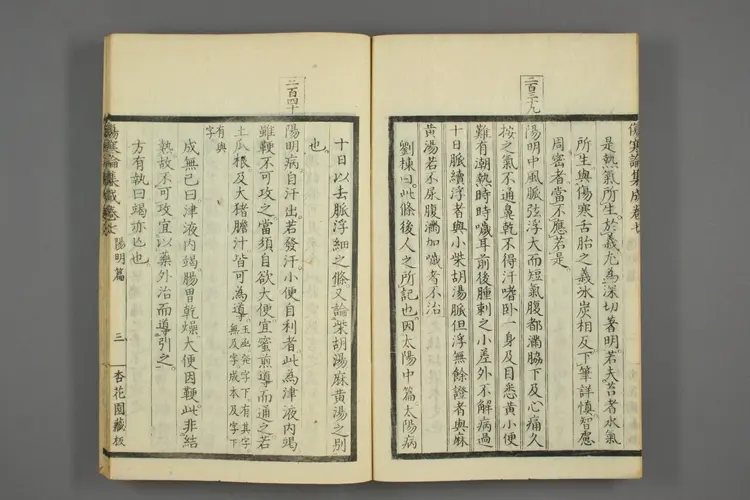 傷寒論集成卷七
是熱氣所生。於義尤為深切著明。若夫苔者水氣
所生與傷寒舌胎之義冰炭相反下筆詳愼智慮
周密者當不應若是
二百三十九
陽明中風脈弦浮大而短氣腹都滿脇下及心痛久
按之氣不通鼻乾不得汗嗜卧一身及目悉黃小便
難有潮熱時時噦耳前後腫刺之小差外不解病過
十日脈續浮者與小柴胡湯脈但浮無餘證者與麻
黃湯若不尿腹滿加噦者不治
劉棟曰。此條後人之所記也。因太陽中篇太陽病
十日以去脈浮細之條又論柴胡湯麻黃湯之別
也。
二百四十
陽明病。自汗出。若發汗。小便自利者此為津液內竭
雖鞕不可攻之。當須自欲大便宜蜜煎導而通之若
土瓜根及大猪膽汁皆可為導。玉函発字下。有其字
無及字成本及字下
有與
字
成無已曰。津液內竭。腸胃乾燥。大便因鞕。此非結
熱。故不可攻宜以藥外治而導引之。
方有執曰竭亦也也
傷寒論集成卷七
陽明篇
三
杏花園藏板